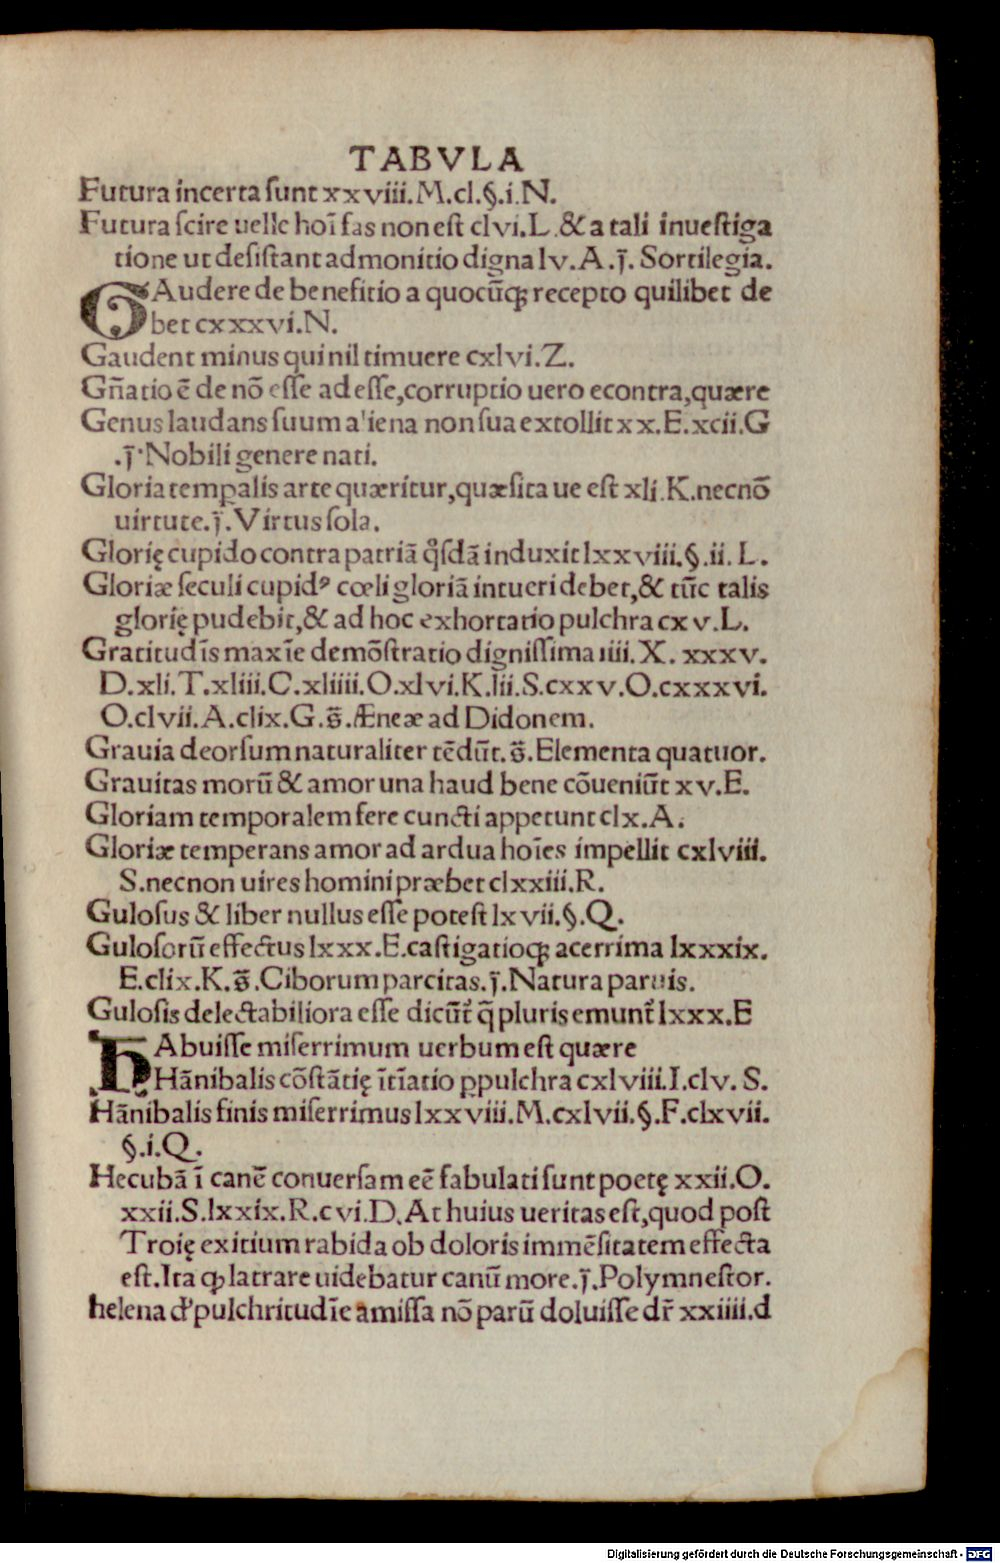 TABVLA
Futura incerta ſunt xxviii.M.cl.§.i.N.
Futura ſcire uelle hoī fas non eſt clvi.L.&a tali inueſtiga
tione ut deſiſtant admonitio digna lv.A.j̄. Sortilegia.
GAudere de benefitio a quocūq; recepto quilibet de
bet cxxxvi.N.
Gaudent minus qui nil timuere cxlvi.Z.
Gñatio ē de nō eſſe ad eſſe,corruptio uero econtra,quære
Genus laudans ſuum a'iena non ſua extollit xx.E.xcii.G
.j̄.Nobili genere nati.
Gloria temꝑalis arte quæritur,quæſita ue eſt xli.K.necnō
uirtute.j̄.Virtus ſola.
Glorię cupido contra patriā qͦſdā induxit lxxviii.§.ii.L.
Gloriæ ſeculi cupidꝰ cœli gloriā intueri debet,& tūc talis
glorię pudebit,& ad hoc exhortatio pulchra cxv.L.
Gratitudīs maxīe demōſtratio digniſſima iiii.X. xxxv.
D.xli.T.xliii.C.xliiii.O.xlvi.K.lii.S.cxxv.O.cxxxvi.
O.clvii.A.clix.G.s̄.Æneæ ad Didonem.
Grauia deorſum naturaliter tēdūt.s̄.Elementa quatuor.
Grauitas morū & amor una haud bene cōueniūt xv.E.
Gloriam temporalem fere cuncti appetunt clx.A.
Gloriæ temperans amor ad ardua hoīes impellit cxlviii.
S.necnon uires homini præbet clxxiii.R.
Guloſus & liber nullus eſſe poteſt lxvii.§.Q.
Guloſorū effectus lxxx.E.caſtigatioq; acerrima lxxxix.
E.clix.K.s̄.Ciborum parcitas.j̄.Natura paruis.
Guloſis delectabiliora eſſe dicūt᷑ q̄ pluris emunt᷑ lxxx.E
HAbuiſſe miſerrimum uerbum eſt quære
Hānibalis cōſtātię ītīatio ꝑpulchra cxlviii.I.clv.S.
Hānibalis finis miſerrimus lxxviii.M.cxlvii.§.F.clxvii.
§.i.Q.
Hecubā ī canē conuerſam eē fabulati ſunt poetę xxii.O.
xxii.S.lxxix.R.cvi.D.At huius ueritas eſt,quod poſt
Troię exitium rabida ob doloris immēſitatem effecta
eſt.Ita ꝙ latrare uidebatur canū more.j̄.Polymneſtor.
helena đ pulchritudīe amiſſa nō parū doluiſſe dr̄ xxiiii.d
Digitalisierung gefördert durch die Deutsche Forschungsgemeinschaft - DFG